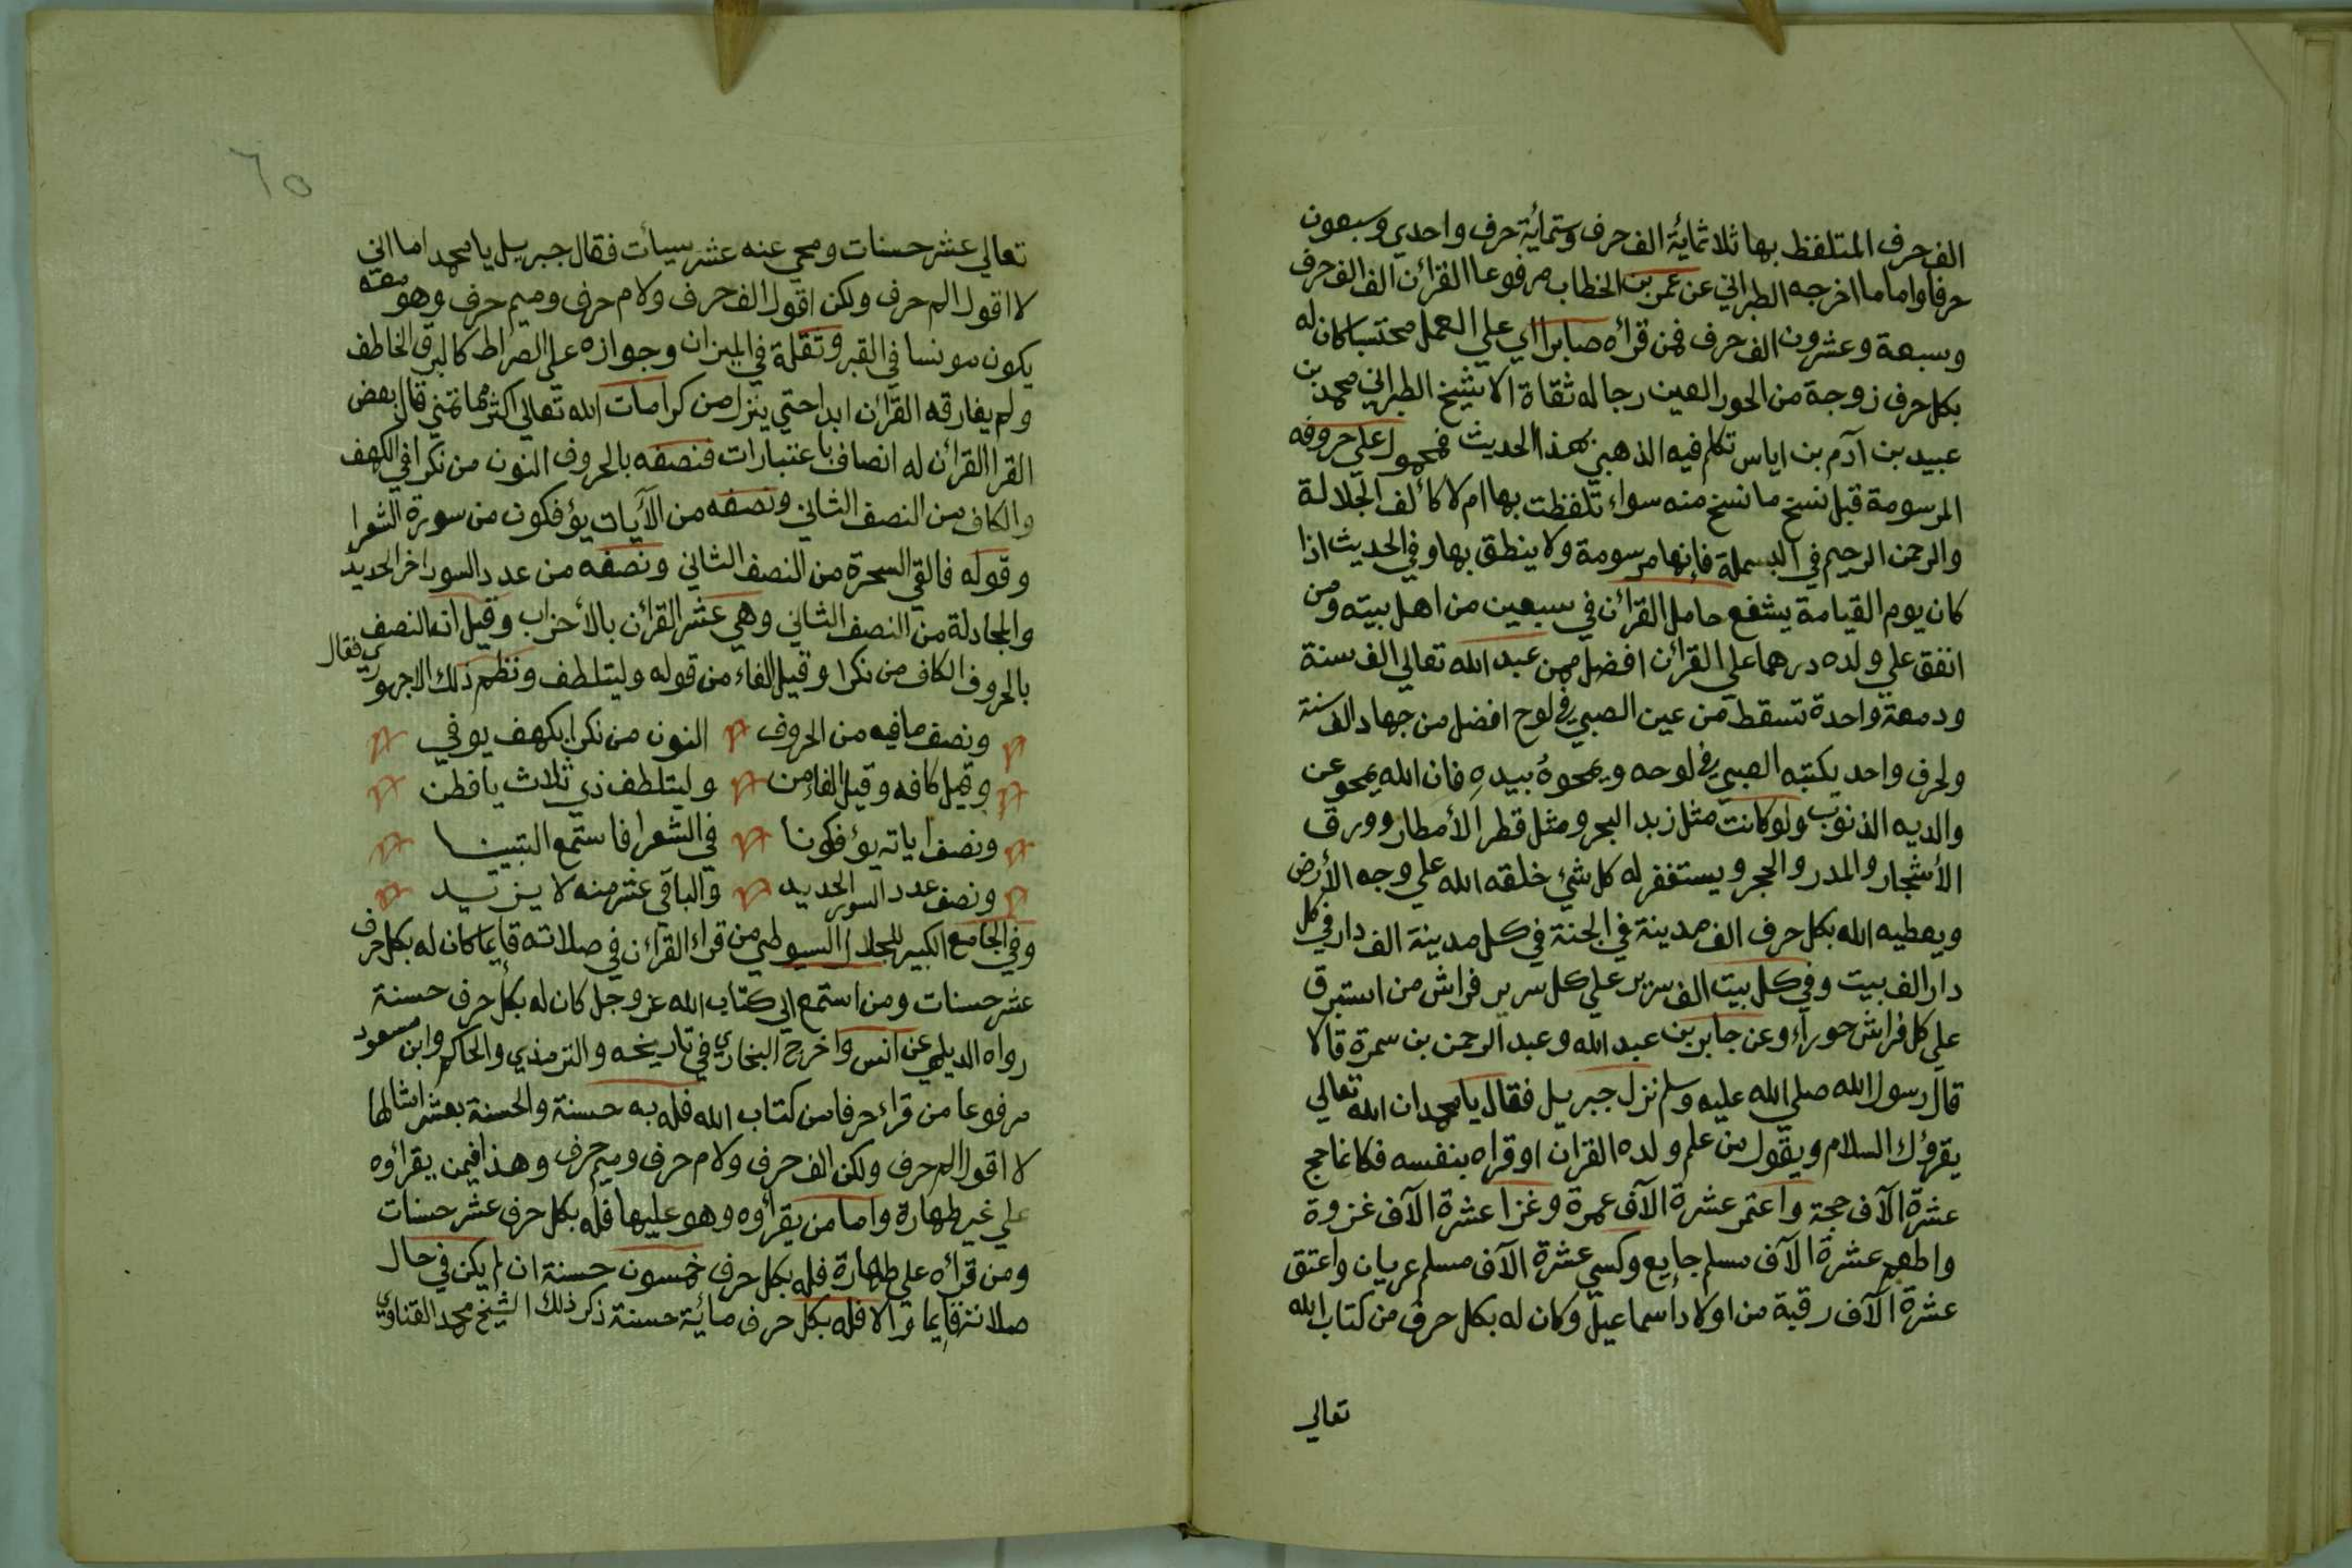 الف حرف المتلفظ بها ثلاثمائة الف حرف وستماية حرف واحدي وسبعون
حرفا واما ما اخرجه الطبراني عن عمر بن الخطاب مرفوعا القرآن الف الف حرف
وسبعة وعشرون الف حرف فمن قرأه صابرا اي علي العمل محتسبا كان له
بكل حرف زوجة من الحور العين رجاله ثقاة الا شيخ الطبراني محمد بن
عبيد بن آدم بن اياس تكلم فيه الذهبي بهذا الحديث فمحمول علي حروفه
المرسومة قبل نسخ ما نسخ منه سواء تلفظت بها ام لا كألف الجلالة
والرحمن الرحيم في البسملة فإنها مرسومة ولا ينطق بها وفي الحديث اذا
كان يوم القيامة يشفع حامل القرآن في سبعين من اهل بيته ومن
انفق علي ولده درهما علي القرآن افضل ممن عبد الله تعالي الف سنة
ودمعة واحدة تسقط من عين الصبي في لوح افضل من جهاد الف سنة
ولحرف واحد يكتبه الصبي في لوحه ويمحوهُ بيدهِ فان الله يمحو عن
والديه الذنوب ولو كانت مثل زبد البحر ومثل قطر الأمطار وورق
الأشجار والمدر والحجر ويستغفر له كل شيء خلقه الله علي وجه الأرض
ويعطيه الله بكل حرف الف مدينة في الجنة في كل مدينة الف دار في كل
دار الف بيت وفي كل بيت الف سرير علي كل سرير فراش من استبرق
علي كل فراش حوراء وعن جابر بن عبد الله وعبد الرحمن بن سمرة قالا
قال رسول الله صلي الله عليه وسلم نزل جبريل فقال يا محمد ان الله تعالي
يقرؤك السلام ويقول من علم ولده القران او قراه بنفسه فكانما حج
عشرة الآف حجة واعتمر عشرة الآف عمرة وغزا عشرة الآف غزوة
واطعم عشرة الآف مسلم جايع وكسي عشرة الآف مسلم عريان واعتق
عشرة الآف رقبة من اولاد اسماعيل وكان له بكل حرف من كتاب الله
تعالي
٦٥
تعالي عشر حسنات ومحي عنه عشر سيأت فقال جبريل يا محمد اما اني
لا اقول الم حرف ولكن اقول الف حرف ولام حرف وميم حرف وهو معه
يكون مونسا في القبر وثقلة في الميزان وجوازه علي الصراط كالبرق الخاطف
ولم يفارقه القرآن ابدا حتي ينزل من كرامات الله تعالي اكثر مما تمني قال بعض
القرا القرآن له انصاف باعتبارات فنصفه بالحروف النون من نكرا في الكهف
والكاف من النصف الثاني ونصفه من الآيات يؤفكون من سورة الشعرا
وقوله فالقي السحرة من النصف الثاني ونصفه من عدد السور اخر الحديد
والمجادلة من النصف الثاني وهي عشر القرآن بالأحزاب وقيل ان النصف
بالحروف الكاف من نكرا وقيل الفاء من قوله وليتلطف ونظم ذلك الاجهوري فقال
ونصف ما فيه من الحروف النون من نكرا بكهف يوفي
وقيل كافه وقيل الفاء من وليتلطف ذي ثلاث يا فطن
ونصف اياته يؤفكونا في الشعرا فاستمع التبيينا
ونصف عدد السور الحديد والباقي عشر منه لا يزيد
وفي الجامع الكبير للجلال السيوطي من قراء القرآن في صلاته قايما كان له بكل حرف
عشر حسنات ومن استمع الي كتاب الله عز وجل كان له بكل حرف حسنة
رواه الديلمي عن انس واخرج البخاري في تاريخه والترمذي والحاكم وابن مسعود
مرفوعا من قراء حرفا من كتاب الله فله به حسنة والحسنة بعشر امثالها
لا اقول الم حرف ولكن الف حرف ولام حرف وميم حرف وهذا فيمن يقرأوه
علي غير طهارة واما من يقرأوه وهو عليها فله بكل حرف عشر حسنات
ومن قرأه علي طهارة فله بكل حرف خمسون حسنة ان لم يكن في حال
صلاته قايما والا فله بكل حرف مائية حسنة ذكر ذلك الشيخ محمد القناوي